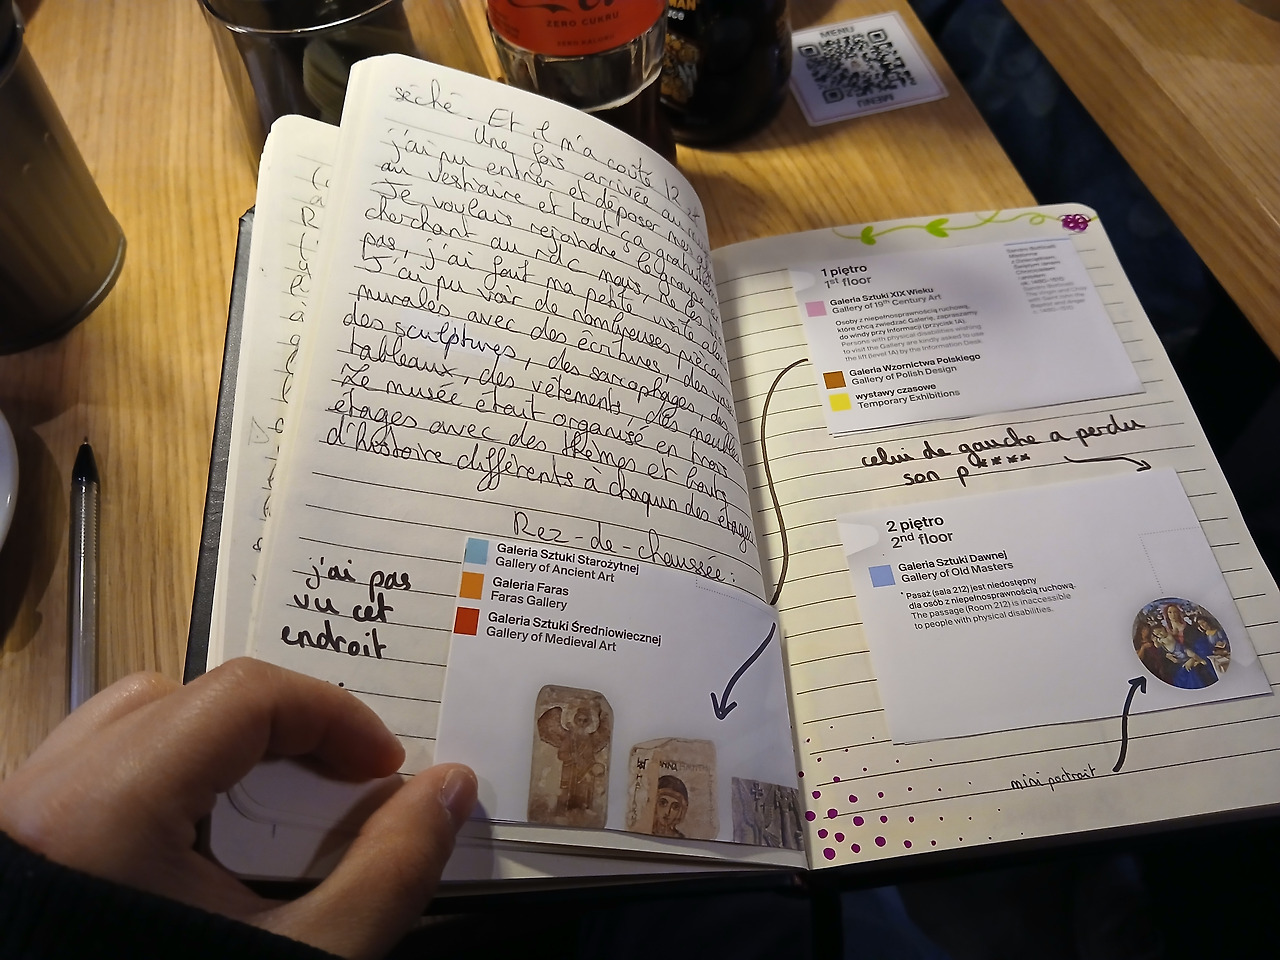 ZERO CUKRU
MENU
MENU
séché. Et il m'a coûté 12 zł
Une fois arrivée au
j'ai pu entrer et déposer mes
au vestiaire et tout ça gratuitement
Je voulais rejoindre le groupe
cherchant au rdc mais, ne les
pas, j'ai fait ma petite visite
J'ai pu voir de nombreuses pièces
murales avec des écritures, des vases
des sculptures, des sarcophages, des
tableaux, des vêtements, des meubles
Le musée était organisé en trois
étages avec des thèmes et
d'histoire différents à chaqun des étages
Rez-de-chaussée :
j'ai pas
vu cet
endroit
Galeria Sztuki Starożytnej
Gallery of Ancient Art
Galeria Faras
Faras Gallery
Galeria Sztuki Średniowiecznej
Gallery of Medieval Art
1 piętro
1st floor
Galeria Sztuki XIX Wieku
Gallery of 19th Century Art
Osoby z niepełnosprawnością ruchową,
które chcą zwiedzać Galerię, zapraszamy
do windy przy Informacji (przycisk 1A).
Persons with physical disabilities wishing
to visit the Gallery are kindly asked to use
the lift (level 1A) by the Information Desk
Galeria Wzornictwa Polskiego
Gallery of Polish Design
wystawy czasowe
Temporary Exhibitions
celui de gauche a perdu
son p****
2 piętro
2nd floor
Galeria Sztuki Dawnej
Gallery of Old Masters
* Pasaż (sala 212) jest niedostępny
dla osób z niepełnosprawnością ruchową.
The passage (Room 212) is inaccessible
to people with physical disabilities.
mini portrait